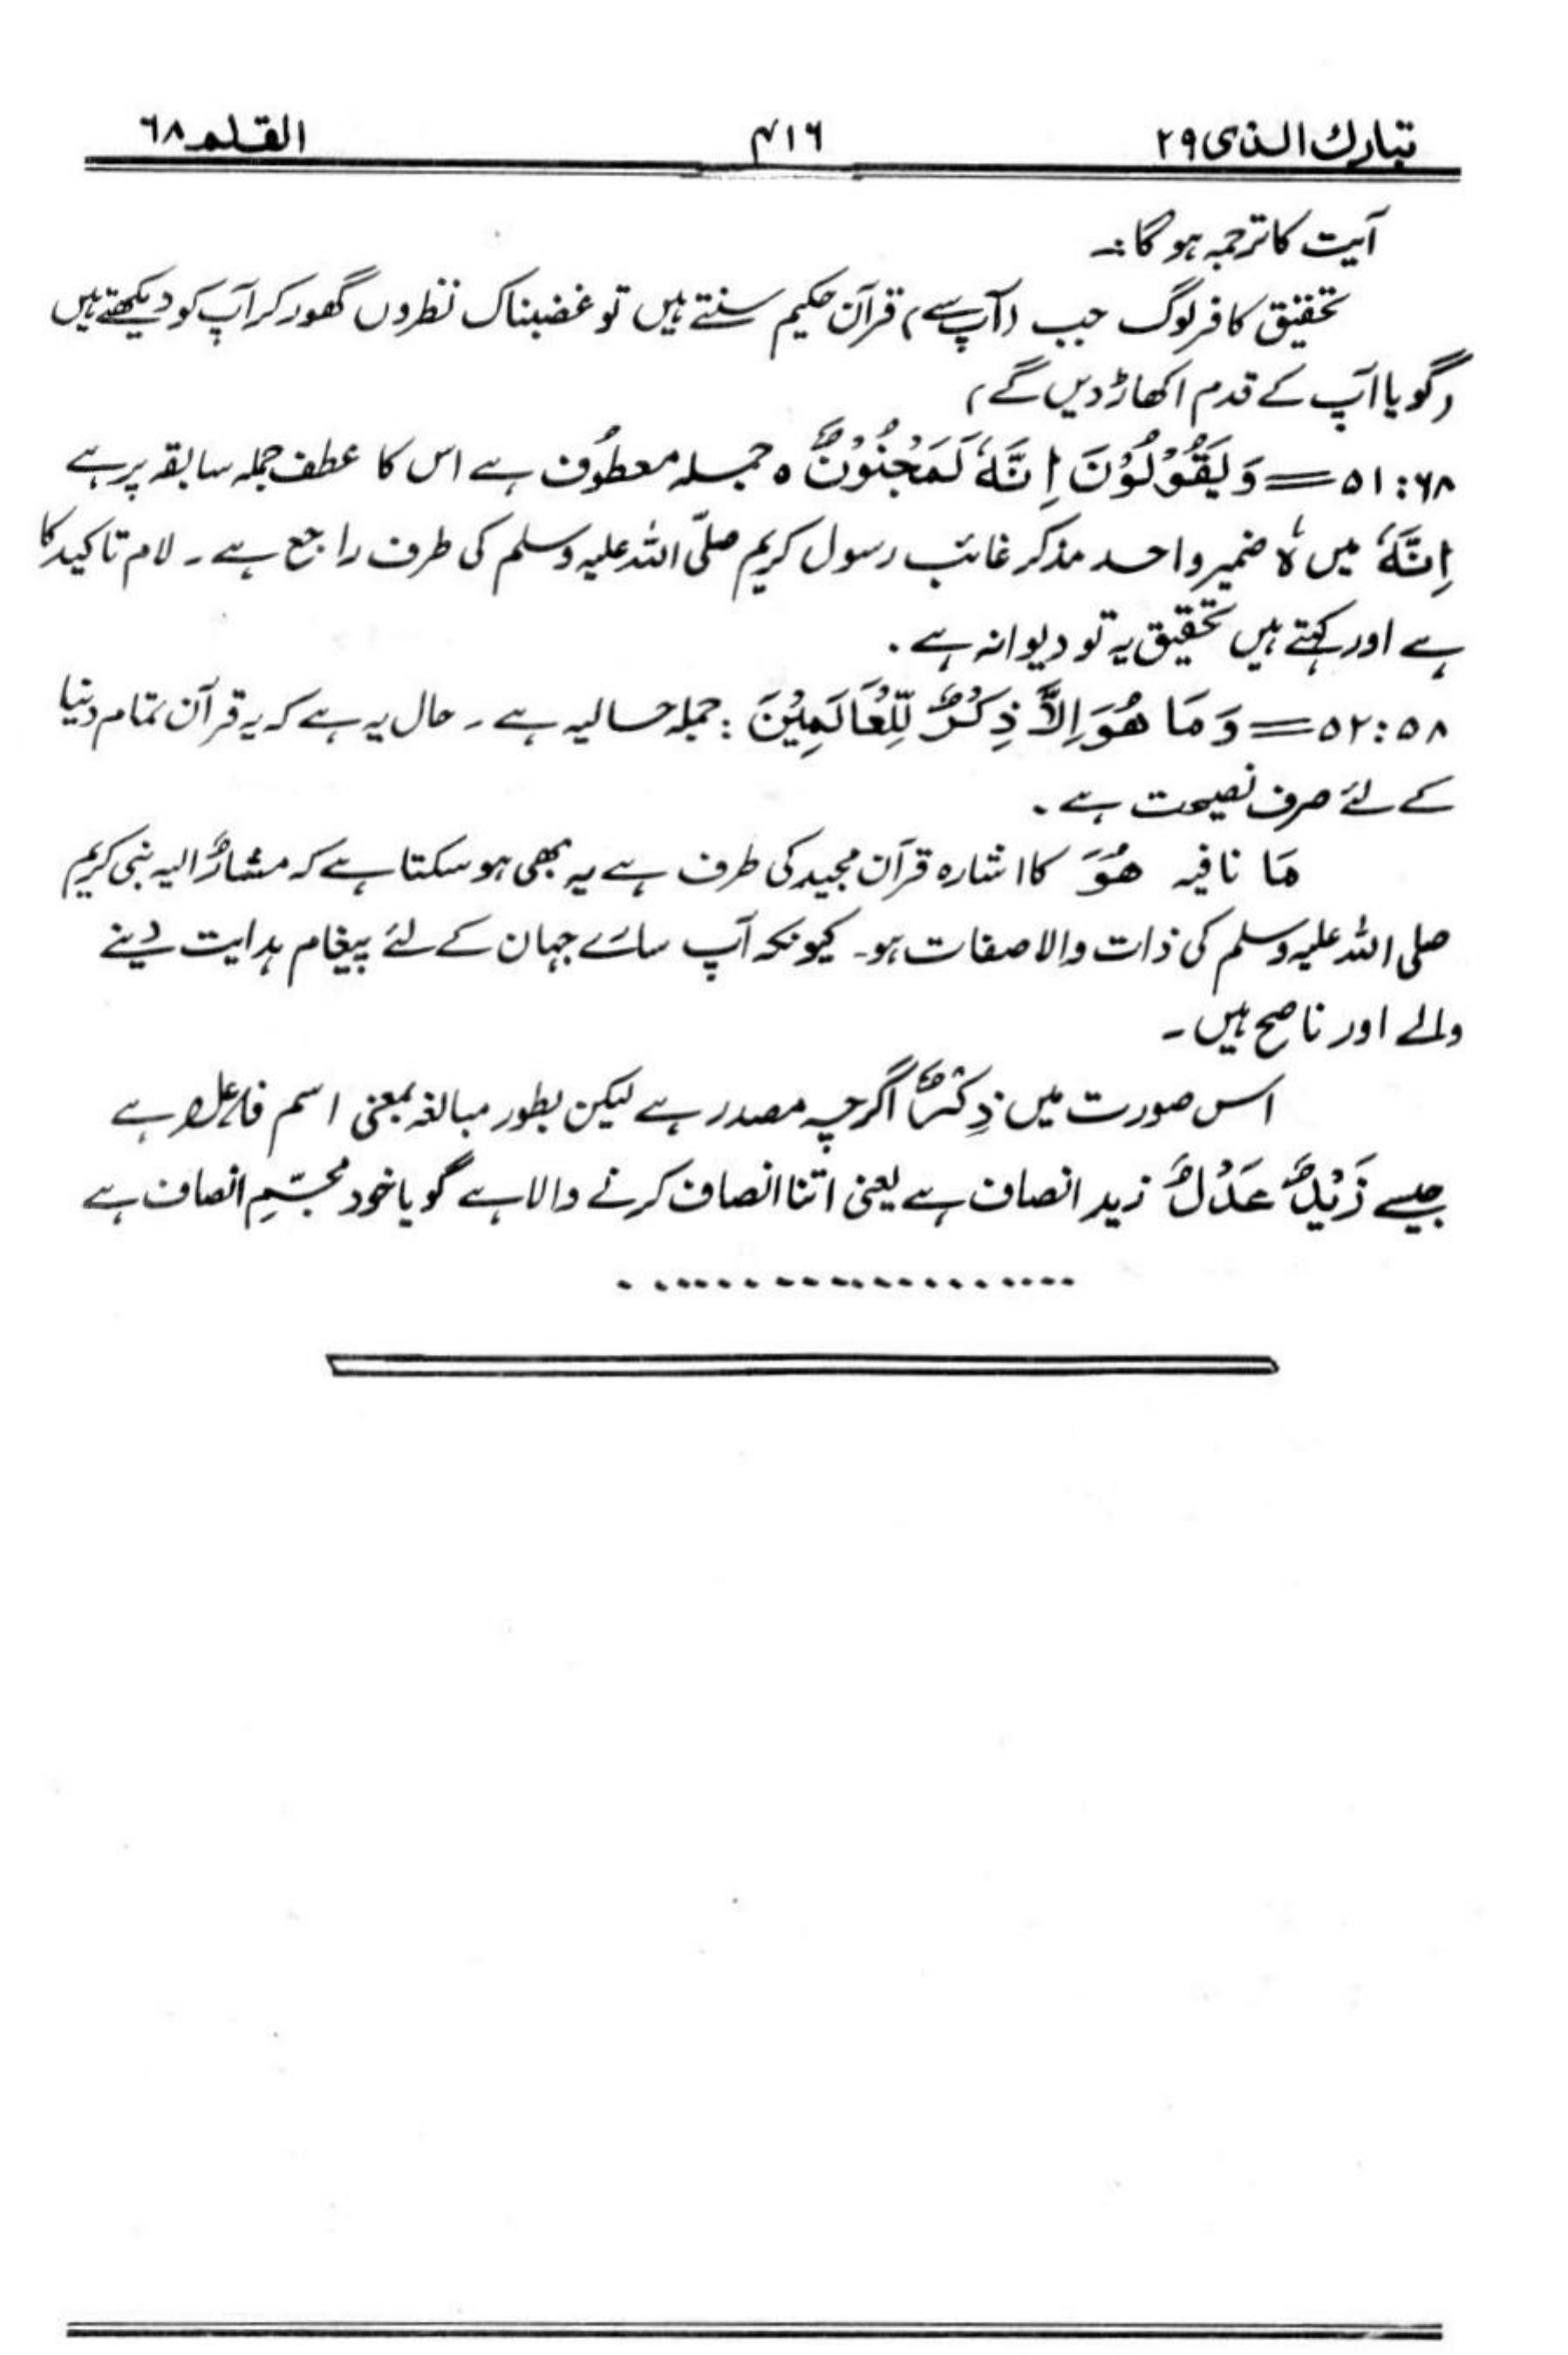 تبارك الذى ٢٩ ٤١٦ القلم ٦٨
آیت کا ترجمہ ہوگا:۔
تحقیق کافر لوگ جب (آپ سے) قرآن حکیم سنتے ہیں تو غضبناک نظروں گھور کر آپ کو دیکھتے ہیں
(گویا آپ کے قدم اکھاڑ دیں گے)
٥١:٦٨ = وَيَقُوْلُوْنَ اِنَّهٗ لَمَجْنُوْنٌ ہ جملہ معطوف ہے اس کا عطف جملہ سابقہ پر ہے
اِنَّهٗ میں هٗ ضمیر واحد مذکر غائب رسول کریم صلّی اللہ علیہ وسلم کی طرف راجع ہے۔ لام تاکید کا
ہے اور کہتے ہیں تحقیق یہ تو دیوانہ ہے۔
٥٢:٥٨ = وَمَا هُوَ اِلَّا ذِكْرٌ لِّلْعَالَمِيْنَ: جملہ حالیہ ہے۔ حال یہ ہے کہ یہ قرآن تمام دنیا
کے لئے صرف نصیحت ہے۔
مَا نافیہ هُوَ کا اشارہ قرآن مجید کی طرف ہے یہ بھی ہو سکتا ہے کہ مشارٌ الیہ نبی کریم
صلی اللہ علیہ وسلم کی ذات والا صفات ہو۔ کیونکہ آپ سارے جہان کے لئے پیغام ہدایت دینے
والے اور ناصح ہیں۔
اس صورت میں ذِكْرٌ اگرچہ مصدر ہے لیکن بطور مبالغہ بمعنی اسم فاعل ہے
جیسے زَيْدٌ عَدْلٌ زید انصاف ہے یعنی اتنا انصاف کرنے والا ہے گویا خود مجسّمِ انصاف ہے